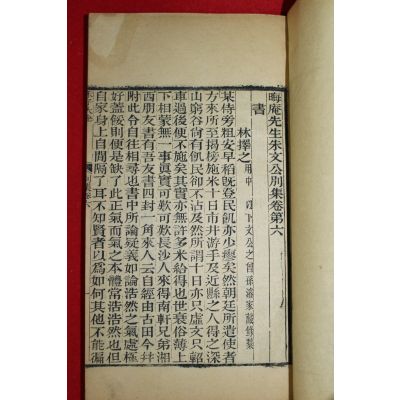 晦庵先生朱文公別集卷第六
書
林擇之
某侍旁粗安早稻旣登民飢亦少瘳矣然朝廷所遣使者
方來所至揭牓施米十日市井游手及近縣之人得之深
山窮谷尙有飢民卻不沾及然所謂十日亦只虛文只軺
車過後便不施矣其實亦無許多米給得也世衰俗薄上
下相蒙無一事眞實可歎可歎長沙人來得南軒兄弟湘
西朋友書有吾友書四封一角來人云自經由古田今幷
附此令自往相尋也書中所論疑義如論浩然之氣處極
好蓋餒則便是缺了此正氣而氣之本體常浩浩然也但
自家身上自間隔了耳不知賢者以爲如何其他不能徧